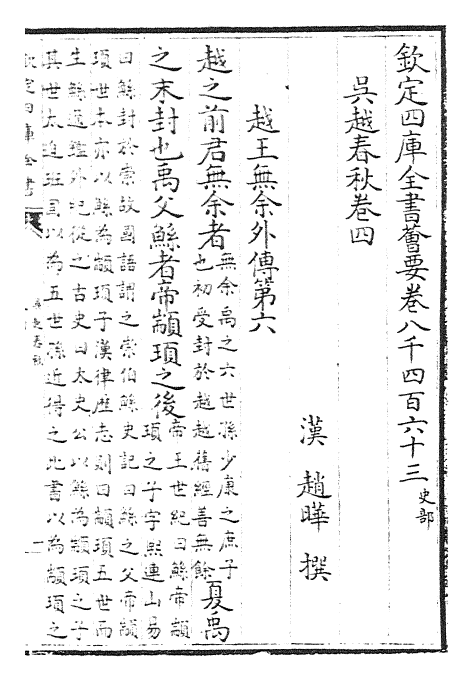 欽定四庫全書薈要卷八千四百六十三 史部
吳越春秋卷四
漢 趙曄 撰
越王無余外傳第六
越之前君無余者
無余禹之六世孫少康之庶子
也初受封於越越舊經善無餘
夏禹
之末封也禹父鯀者帝顓頊之後
帝王世紀曰鯀帝顓
頊之子字熙連山易
曰鯀封於崇故國語謂之崇伯鯀史記曰鯀之父帝顓
頊世本亦以鯀為顓頊子漢律歴志則曰顓頊五世而
生鯀通鑑外紀從之古史曰太史公以鯀為顓頊之子
其世太迫班固以為五世孫近得之此書以為顓頊之
欽定四庫全書
吳越春秋
一